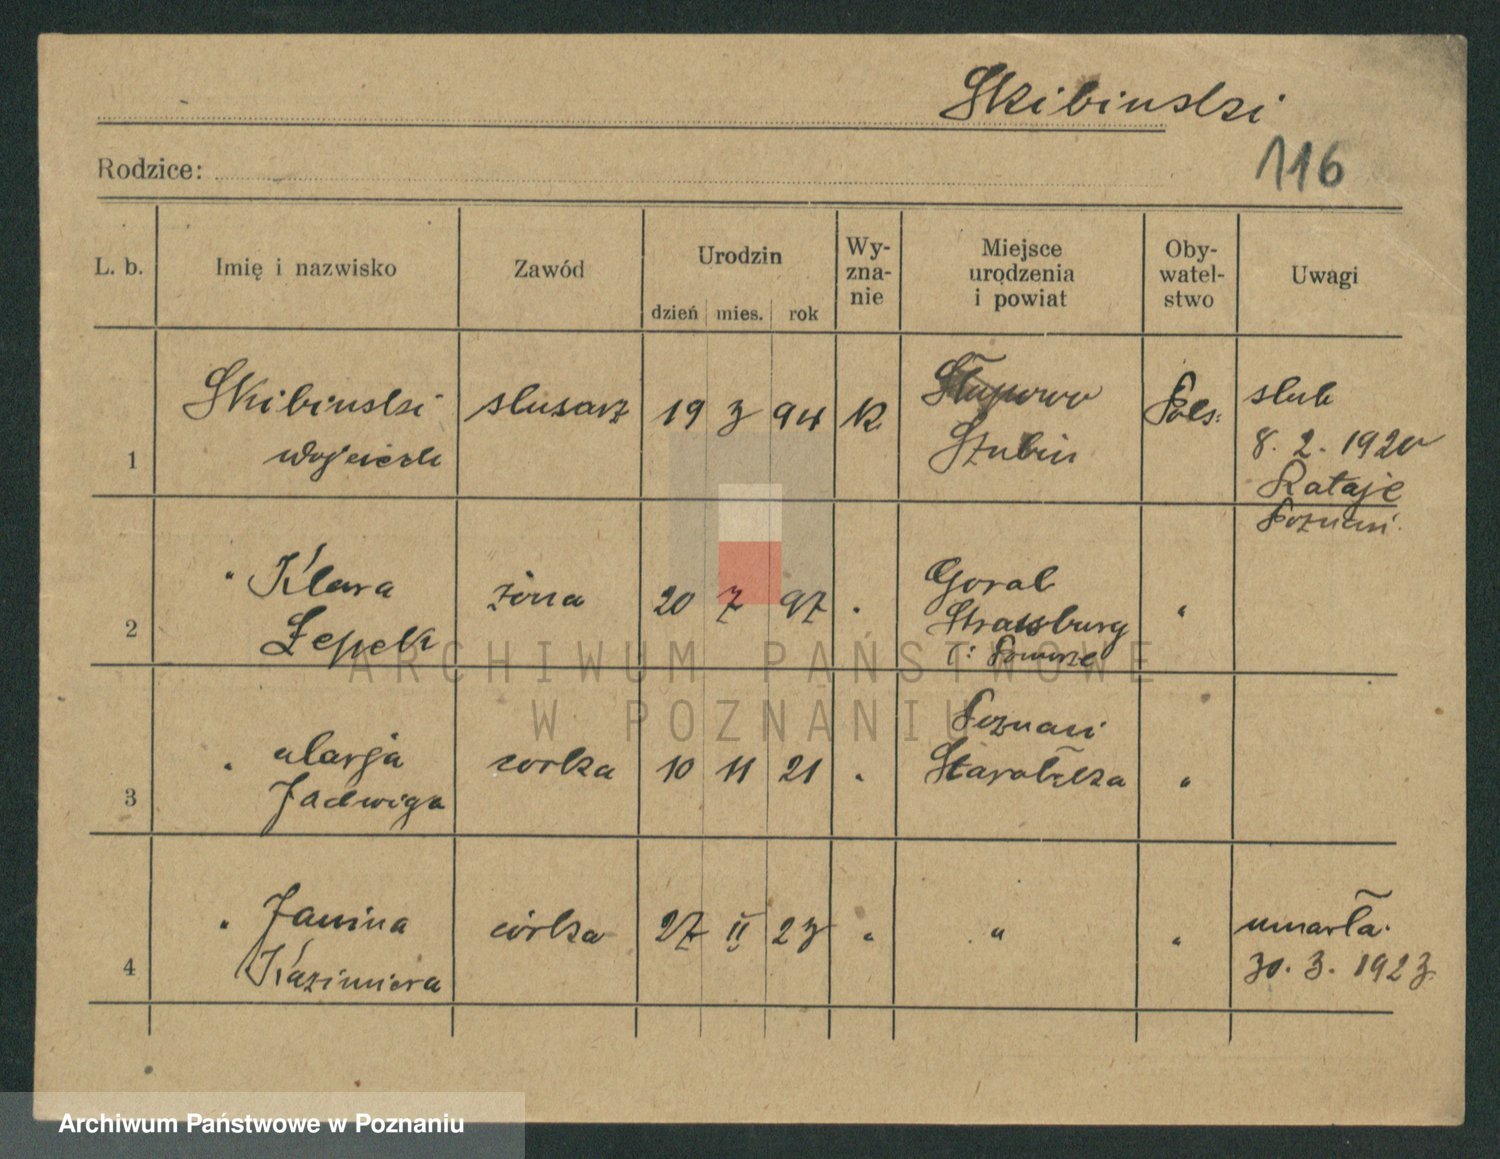 Skibinski
116
Rodzice:
L. b. Imię i nazwisko Zawód Urodzin dzień mies. rok Wy-
zna-
nie Miejsce
urodzenia
i powiat Oby-
watel-
stwo Uwagi
1 Skibinski slusarz 19 3 94 K. Słupowo Pols: slub
Wojciech Szubin 8. 2. 1920
Rataje
Poznań.
2 " Klara żona 20 7 97 " Goral "
Łepek Strassburg
Pomorze
3 " Marja corka 10 11 21 " Poznań "
Jadwiga Starołęka
4 " Janina córka 27 II 23 " " " umarła.
Kazimiera 30. 3. 1923.
ARCHIWUM PAŃSTWOWE
W POZNANIU
Archiwum Państwowe w Poznaniu